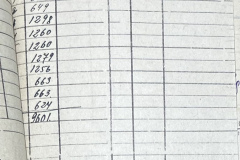 649
1298
1260
1260
1279
1256
663
663
624
9601